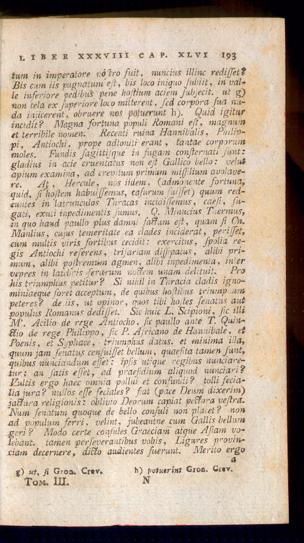 LIBER XXXVIII CAP. XLVI 193
tum in imperatore nostro fuit, nuncius illinc redisset?
Bis cum iis pugnatum est, bis loco iniquo subiit, in val-
le inferiore pedibus pene hostium aciem subjecit. ut g)
non tela ex superiore loco mitterent, sed corpora sua nu-
da injicerent, obruere nos potuerunt h). Quid igitur
incidit? Magna fortuna populi Romani est, magnum
et terribile nomen. Recenti ruina Hannibalis, Philip-
pi, Antiochi, prope adtoniti erant, tantae corporum
moles. Fundis sagittisque in fugam consternati sunt:
gladius in acie cruentatus non est Gallico bello: velut
apium examina, ad crepitum primum missilium avolave-
re. At, Hercule, nos iidem (admonente fortuna,
quid, si hostem habuissemus, casurum fuisset) quum red-
euntes in latrunculos Turacas incidissemus, caesi, fu-
gati, exuti inpedimentis sumus. Q. Minucius Tuermus,
in quo haud paullo plus damni factum est, quam si Cn.
Manlius, cujus temeritate ea clades inciderat, perisset,
cum multis viris fortibus cecidit: exercitus, spolia re-
gis Antiochi referens, trifariam dissipatus, alibi pri-
mum, alibi postremum agmen, alibi inpedimenta, inter
vepres in latebris ferarum noctem unam delituit. Pro
his triumphus petitur? Si nihil in Turacia cladis igno-
miniaeque foret acceptum, de quibus hostibus triumphum
peteres? de iis, ut opinor, quos tibi hostes senatus aut
populus Romanus dedisset. Sic huic L. Scipioni, sic illi
M'. Acilio de rege Antiocho, sic paullo ante T. Quin-
ctio de rege Philippo, sic P. Africano de Hannibale, et
Poenis, et Syphace, triumphus datus. et minima illa,
quum jam senatus censuisset bellum, quaesita tamen sunt,
quibus nunciandum esset: ipsis utique regibus nunciare-
tur: an satis esset, ad praesidium aliquod nunciari?
Vultis ergo haec omnia pollui et confundi? tolli fecia-
lia jura? nullos esse feciales? fiat (pace Deum dixerim)
jactura religionis: oblivio Deorum capiat pectora vestra.
Num senatum quoque de bello consuli non placet? non
ad populum ferri, velint, jubeantne cum Gallis bellum
geri? Modo certe consules Graeciam atque Asiam vo-
lebant. tamen perseverantibus vobis, Ligures provin-
ciam decernere, dicto audientes fuerunt. Merito ergo
a
g) ut, si Gron. Crev. h) potuerint Gron. Crev.
TOM. III. N